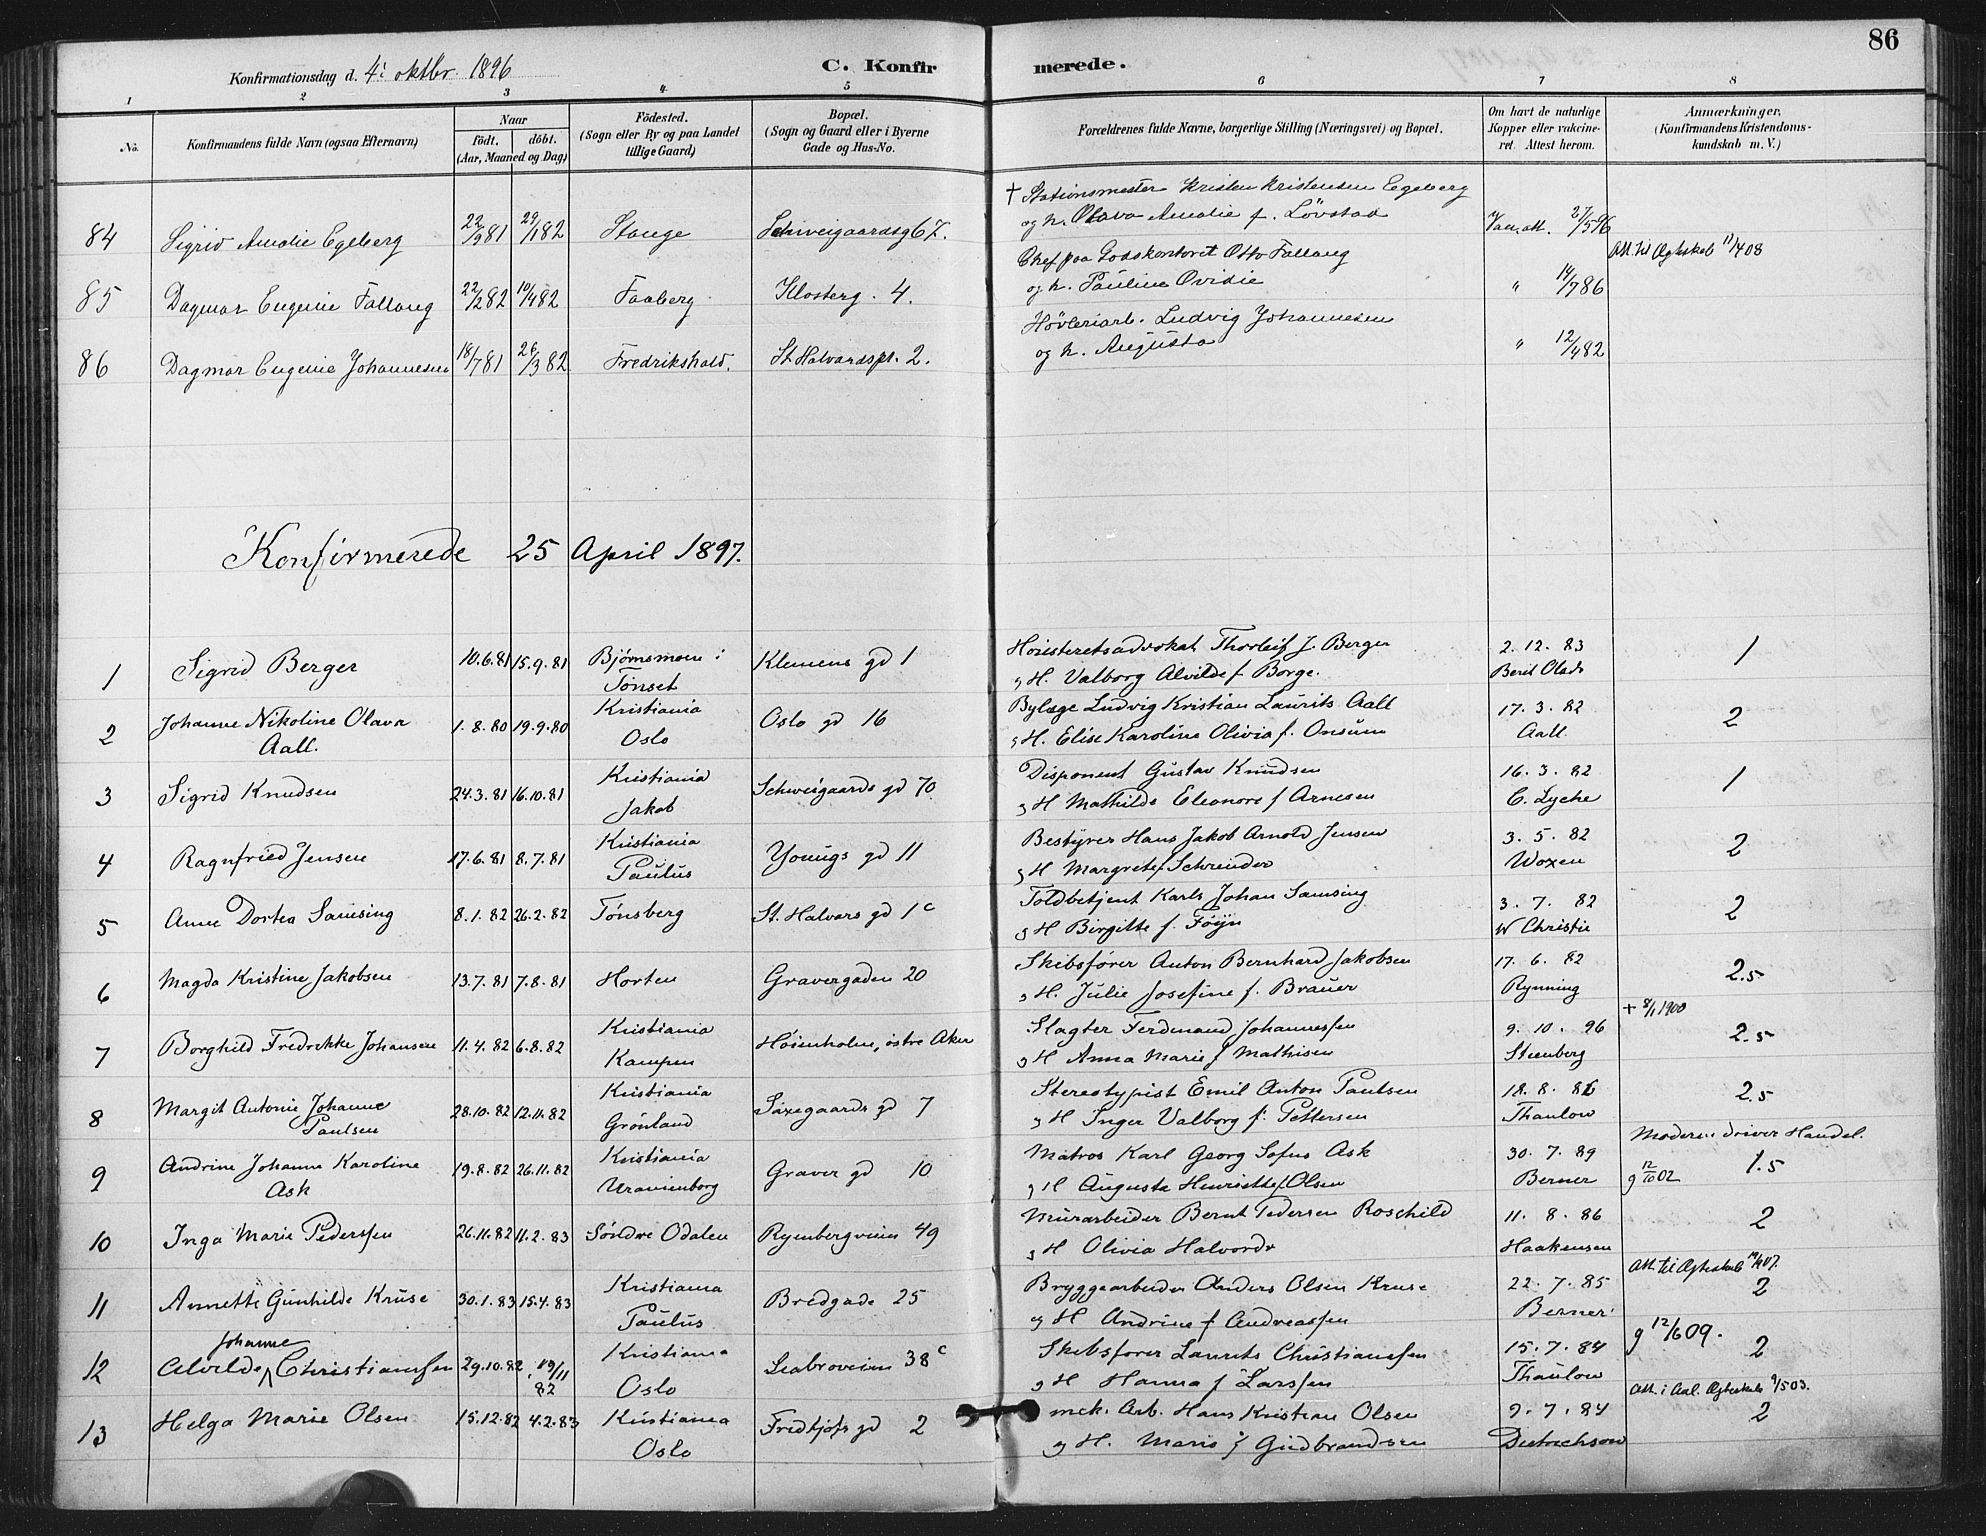 86
Konfirmationsdag d. 4de oktbr. 1896
C. Konfirmerede.
1 2 3 4 5 6 7 8
No.
Konfirmandens fulde Navn (ogsaa Efternavn)
Naar
født. døbt.
(Aar, Maaned og Dag)
Fødested.
(Sogn eller By og paa Landet
tillige Gaard)
Bopæl.
(Sogn og Gaard eller i Byerne
Gade og Hus-No.
Forældrenes fulde Navne, borgerlige Stilling (Næringsvei) og Bopæl.
Om havt de naturlige
Kopper eller vakcine-
ret. Attest herom.
Anmærkninger,
(Konfirmandens Kristendoms-
kundskab m. V.)
† Stationsmester Kristen Kristensen Egeberg
84 Sigrid Amalie Egeberg 22/9 81 29/1 82 Stange Schweigaardsg 67. og h. Olava Amalie f. Løvstad Vac. att. 27/5 96
Chef paa Godskontoret Otto Fallang Att. til Ægteskab 11/4 08
85 Dagmar Eugenie Fallang 22/2 82 10/4 82 Faaberg Klosterg. 4. og h. Pauline Ovidie " 14/7 86
Høvleriarb. Ludvig Johannesen
86 Dagmar Eugenie Johannesen 18/7 81 26/3 82 Fredrikshald. St Halvardspl. 2. og h. Augusta " 12/4 82
Konfirmerede 25 April 1897.
1 Sigrid Berger 10.6.81 15.9.81 Bjørnsmoen i Klemens gd 1 Høiesteretsadvokat Thorleif J. Berger 2. 12. 83 1
Tønset og H. Valborg Alvilde f. Borge. Berit Olads
2 Johanne Nikoline Olava 1. 8. 80 19.9.80 Kristiania Oslo gd 16 Bylæge Ludvig Kristian Laurits Aall 17. 3. 82 2
Aall. Oslo og H. Elise Karoline Olivia f. Onsum Aall
3 Sigrid Knudsen 24.3.81 16.10.81 Kristiania Schweigaards gd 70 Disponent Gustav Knudsen 16. 3. 82 1
Jakob og H Mathilde Eleonore f Arnesen C. Lyche
4 Ragnfried Jensen 17.6.81 8.7.81 Kristiania Youngs gd 11 Bestyrer Hans Jakob Arnold Jensen 3. 5. 82 2
Paulus og H Margrete f Schreuder Woxen
5 Anne Dortea Samsing 8.1.82 26.2.82 Tønsberg St. Halvars gd 1c Toldbetjent Karls Johan Samsing 3. 7. 82 2
og H Birgitte f. Føyn W Christie
6 Magda Kristine Jakobsen 13.7.81 7.8.81 Horten Gravergaden 20 Skibsfører Anton Bernhard Jakobsen 17. 6. 82 2.5
og H. Julie Josefine f. Brauer Rynning
† 8/1 1900
7 Borghild Fredrikke Johansen 11.4.82 6.8.82 Kristiania Høienholm, østre Aker Slagter Ferdinand Johannessen 9. 10. 96 2.5
Kampen og H Anna Marie f Mathisen Steenberg
8 Margit Antonie Johanne 28.10.82 12.11.82 Kristiania Saxegaards gd 7 Stereotypist Emil Anton Paulsen 18. 8. 86 2.5
Paulsen Grønland og H Inger Valborg f. Pettersen Thaulow
Moderen driver Handel.
9 Andrine Johanne Karoline 19.8.82 26.11.82 Kristiania Graver gd 10 Matros Karl Georg Sofus Ask 30. 7. 89 1.5
Ask Uranienborg og H Augusta Henriette f Olsen Berner g 12/10 02
10 Inga Marie Pederssen 26.11.82 11.2.83 Søndre Odalen Rymbergveien 49 Murarbeider Bernt Pedersen Roschild 11. 8. 86 2
og H Olivia Halvordr Haakensen
Att. til Ægteskab 19/4 07.
11 Annette Gunhilde Kruse 30.1.83 15.4.83 Kristiania Bredgade 25 Bryggearbeider Anders Olsen Kruse 22. 7. 85 2
Paulus og H Andrine f Andreassen Berner
g 12/6 09.
12 Alvilde Johanne Christianssen 29.10.82 19/11 82 Kristiania Seabroveien 38c Skibsfører Laurits Christianssen 15. 7. 84 2
Oslo og H Hanna f Larssen Thaulow
Att. i Aal. Ægteskab 9/5 03.
13 Helga Marie Olsen 15.12.82 4.2.83 Kristiania Fredtjofs gd 2 mek. Arb. Hans Kristian Olsen 9. 7. 84 2
Oslo og H. Marie f Gudbrandsen Dietrichson